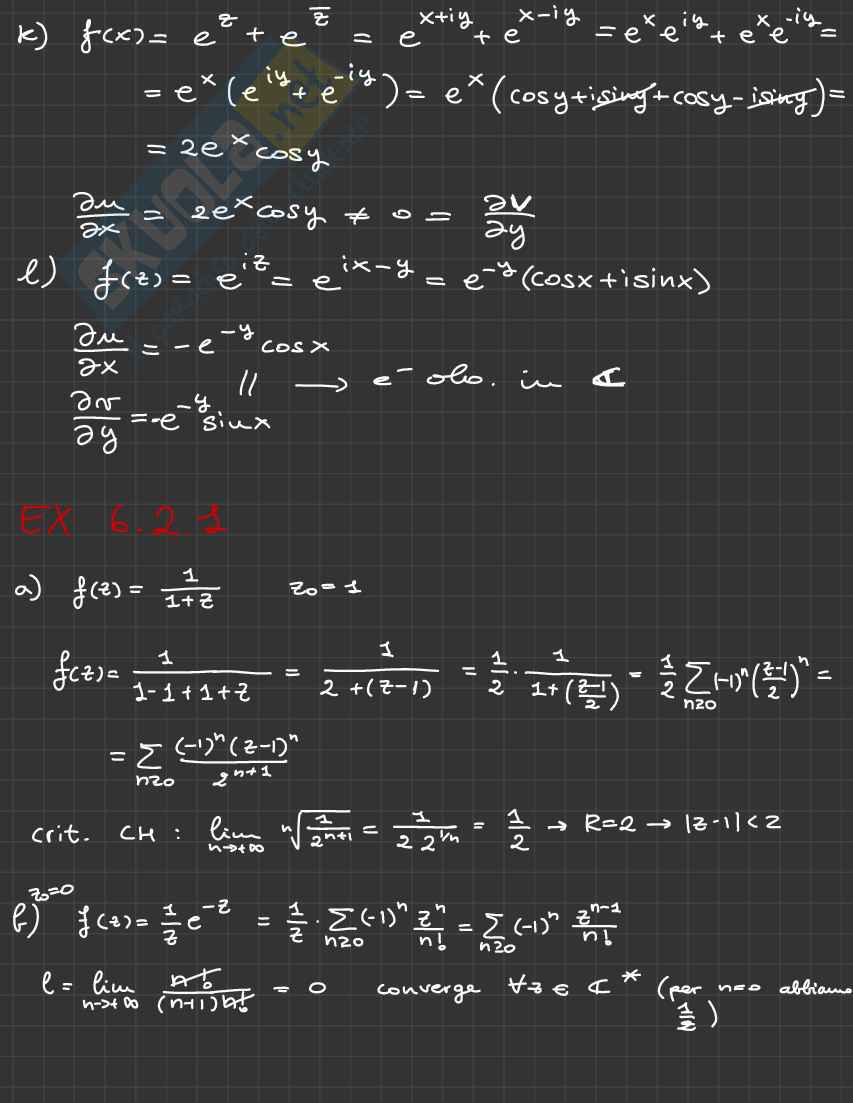 k) f(x) = e^z + e^z̅ = e^{x+iy} + e^{x-iy} = e^x e^{iy} + e^x e^{-iy} =
= e^x (e^{iy} + e^{-iy}) = e^x (cosy + isiny + cosy - isiny) =
= 2e^x cosy
∂u/∂x = 2e^x cosy ≠ 0 = ∂V/∂y
l) f(z) = e^{iz} = e^{ix-y} = e^{-y} (cosx + isinx)
∂u/∂x = -e^{-y} cosx
// → e^- olo. in ℂ
∂v/∂y = -e^{-y} sinx
EX 6.2.1
a) f(z) = 1/(1+z) z₀ = 1
f(z) = 1/(1-1+1+z) = 1/(2+(z-1)) = 1/2 · 1/(1+((z-1)/2)) = 1/2 ∑_{n≥0} (-1)^n ((z-1)/2)^n =
= ∑_{n≥0} (-1)^n (z-1)^n / 2^{n+1}
crit. CH : lim_{n→+∞} ⁿ√(1/2^{n+1}) = 1/(2 2^{1/n}) = 1/2 → R=2 → |z-1| < 2
z₀=0
b) f(z) = 1/z e^{-z} = 1/z · ∑_{n≥0} (-1)^n z^n/n! = ∑_{n≥0} (-1)^n z^{n-1}/n!
l = lim_{n→+∞} n!/((n+1)n!) = 0 converge ∀z ∈ ℂ* (per n=0 abbiamo
1/z)
SKUOLA.net